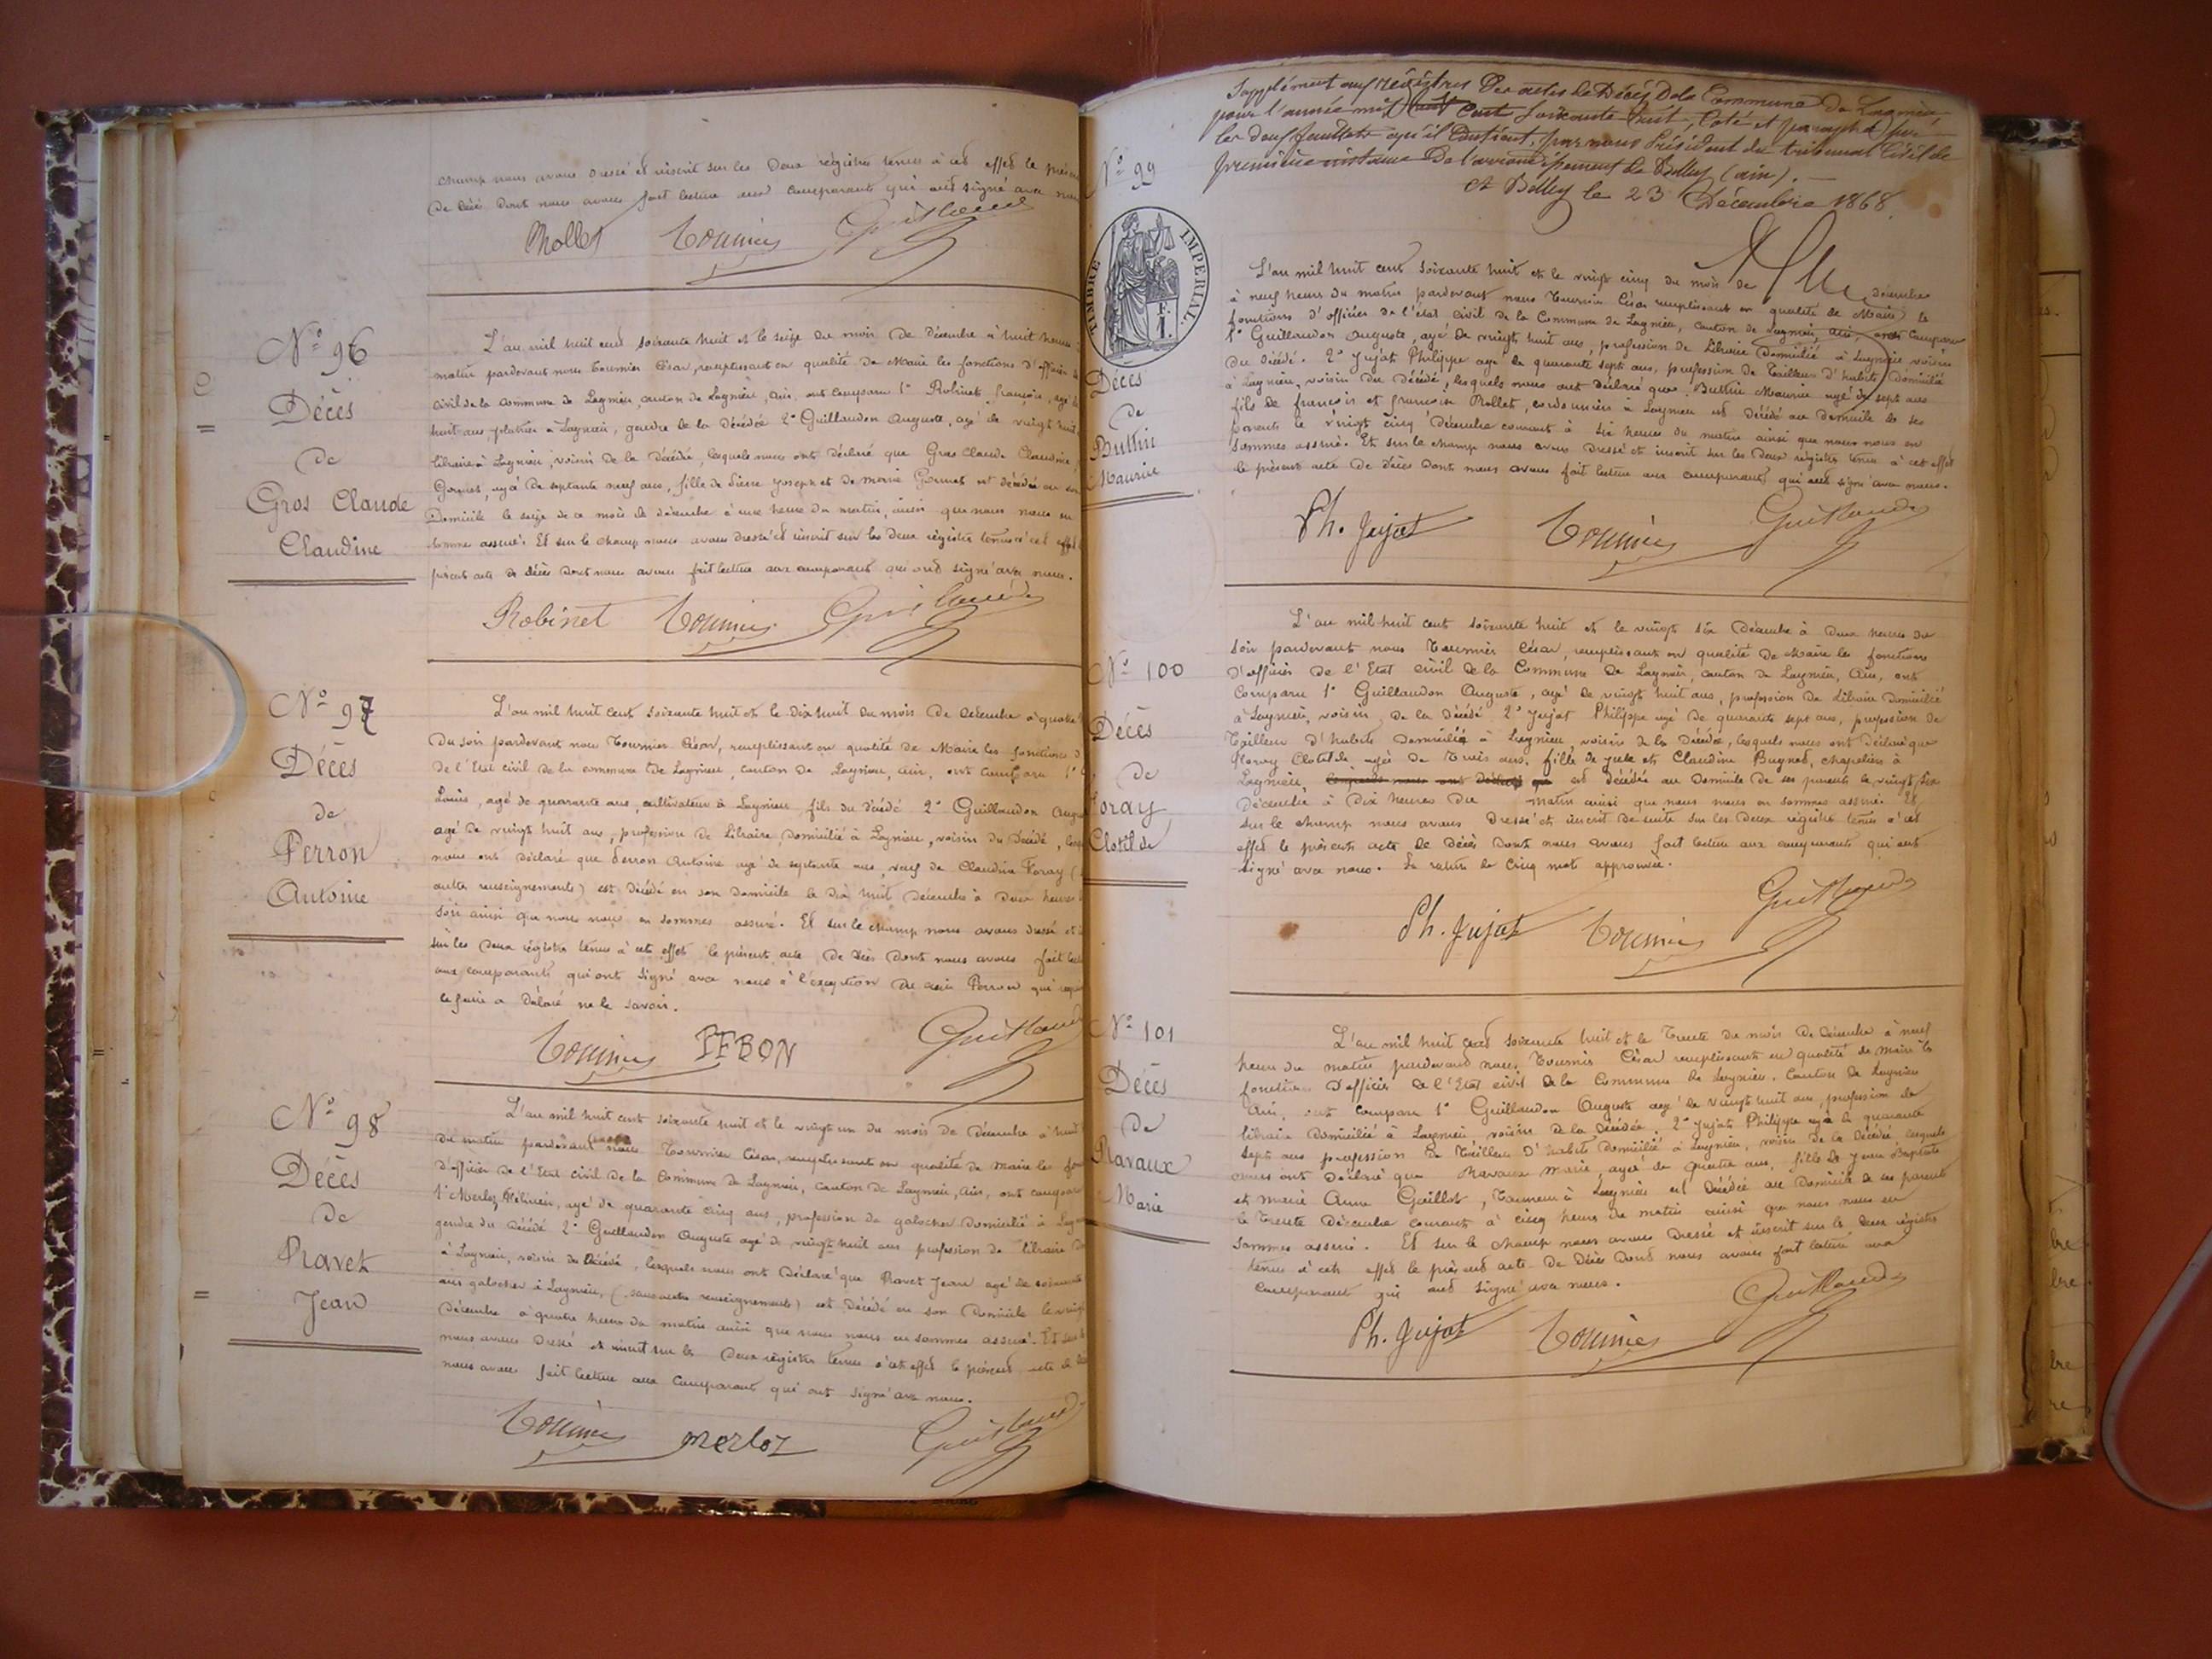 champ nous avons dressé et inscrit sur les deux registres tenus à cet effet le présent
de décès dont nous avons fait lecture aux comparants qui ont signé avec nous
Mollet Tournier Guillaudon
N° 96
Décès
de
Gros Claude
Claudine
L'an mil huit cent soixante huit et le seize du mois de décembre à huit heures
matin pardevant nous Tournier César, remplissant en qualité de Maire les fonctions d'officier
civil de la commune de Lagnieu, canton de Lagnieu, Ain, ont comparu 1° Robinet françois, agé
huit ans, platrier à Lagnieu, gendre de la décédée 2° Guillaudon Auguste, agé de vingt huit
libraire à Lagnieu, voisin de la décédée, lesquels nous ont déclaré que Gros Claude Claudine,
agée de septante neuf ans, fille de Pierre Joseph et de Marie est décédée en son
Domicile le seize de ce mois de décembre à une heure du matin, ainsi que nous nous en
sommes assuré. Et sur le champ nous avons dressé et inscrit sur les deux registres tenus à cet effet
présent acte de décès dont nous avons fait lecture aux comparants qui ont signé avec nous.
Robinet Tournier Guillaudon
N° 97
Décès
de
Perron
Antoine
L'an mil huit cent soixante huit et le dix huit du mois de décembre à quatre
du soir pardevant nous Tournier César, remplissant en qualité de Maire les fonctions d
de l'Etat civil de la commune de Lagnieu, canton de Lagnieu, Ain, ont comparu 1°
Louis, agé de quarante ans, cultivateur à Lagnieu fils du décédé 2° Guillaudon Augus
agé de vingt huit ans, profession de libraire, domicilié à Lagnieu, voisin du décédé,
nous ont déclaré que Perron Antoine agé de septante ans, veuf de Claudine Foray (
autre renseignements) est décédé en son domicile le dix huit décembre à deux heures
soir ainsi que nous nous en sommes assuré. Et sur le champ nous avons dressé et
sur les deux registres tenus à cet effet le présent acte de décès dont nous avons fait
aux comparants qui ont signé avec nous à l'exception du Perron qui
le faire a déclaré ne le savoir.
Tournier Guillaudon
N° 98
Décès
de
Ravet
Jean
L'an mil huit cent soixante huit et le vingt un du mois de décembre à huit
du matin pardevant nous Tournier César, remplissant en qualité de Maire les
d'officier de l'Etat civil de la Commune de Lagnieu, canton de Lagnieu, Ain, ont
1° Merloz, agé de quarante cinq ans, profession de galocher domicilié à
gendre du décédé 2° Guillaudon Auguste agé de vingt huit ans profession de libraire
à Lagnieu, voisin du décédé, lesquels nous ont déclaré que Ravet Jean agé de soixante
ans galocher à Lagnieu, (sans autre renseignements) est décédé en son domicile le vingt
décembre à quatre heures du matin ainsi que nous nous en sommes assuré. Et sur
nous avons dressé et inscrit sur les deux registres tenus à cet effet le présent acte de
nous avons fait lecture aux comparants qui ont signé avec nous.
Tournier merloz Guillaudon
Supplément aux régistres des actes de Décès De la Commune de Lagnieu,
pour l'année mil huit cent soixante huit, Coté et paraphé sur
les deux feuillets qu'il Contient, par nous Président du tribunal Civil de
première instance De l'arrondissement de Belley (ain).
A Belley le 23 Décembre 1868.
N° 99
TIMBRE IMPERIAL.
F.
1.
Décès
de
Buttin
Maurice
L'an mil huit cent soixante huit et le vingt cinq du mois de décembre
à neuf heures du matin pardevant nous Tournier César remplissant en qualité de Maire les
fonctions d'officier de l'état civil de la Commune de Lagnieu, canton de Lagnieu, Ain, ont comparu
1° Guillaudon Auguste, agé de vingt huit ans, profession de Libraire domicilié à Lagnieu voisin
du décédé. 2° Jujat Philippe agé de quarante sept ans, profession de Tailleur d'habits domicilié
à Lagnieu, voisin du décédé, lesquels nous ont déclaré que Buttin Maurice agé de sept ans
fils de françois et françoise Mollet, cordonniers à Lagnieu est décédé au domicile de ses
parents le vingt cinq décembre courant à six heures du matin ainsi que nous nous en
sommes assuré. Et sur le champ nous avons dressé et inscrit sur les deux registres tenus à cet effet
le présent acte de décès dont nous avons fait lecture aux comparants qui ont signé avec nous.
Ph. Jujat Tournier Guillaudon
N° 100
Décès
de
Foray
Clotilde
L'an mil huit cent soixante huit et le vingt six décembre à deux heures du
soir pardevant nous Tournier César, remplissant en qualité de Maire les fonctions
d'officier de l'Etat civil de la Commune de Lagnieu, canton de Lagnieu, Ain, ont
comparu 1° Guillaudon Auguste, agé de vingt huit ans, profession de Libraire domicilié
à Lagnieu, voisin de la décédé 2° Jujat Philippe agé de quarante sept ans, profession de
Tailleur d'habits domicilié à Lagnieu, voisin de la décédée, lesquels nous ont déclaré que
Foray Clotilde agée de trois ans, fille de et Claudine Bugnod, chapeliers à
Lagnieu, lesquels nous ont déclaré que est décédée au domicile de ses parents le vingt six
décembre à dix heures du matin ainsi que nous nous en sommes assuré. Et
sur le champ nous avons dressé et inscrit de suite sur les deux registres tenus à cet
effet le présent acte de décès dont nous avons fait lecture aux comparants qui ont
signé avec nous. La rature de cinq mots approuvée.
Ph. Jujat Tournier Guillaudon
N° 101
Décès
de
Ravaux
Marie
L'an mil huit cent soixante huit et le trente du mois de décembre à neuf
heures du matin pardevant nous Tournier César remplissant en qualité de Maire les
fonctions d'officier de l'Etat civil de la Commune de Lagnieu, Canton de Lagnieu
Ain, ont comparu 1° Guillaudon Auguste agé de vingt huit ans, profession de
libraire domicilié à Lagnieu, voisin de la décédée. 2° Jujat Philippe agé de quarante
sept ans profession de Tailleur d'habits domicilié à Lagnieu, voisin de la décédée, lesquels
nous ont déclaré que Ravaux Marie, agée de quatre ans, fille de Jean Baptiste
et Marie Anne Guillot, Tanneur à Lagnieu est décédée au domicile de ses parents
le trente décembre courant à cinq heures du matin ainsi que nous nous en
sommes assuré. Et sur le champ nous avons dressé et inscrit sur les deux régistres
tenus à cet effet le présent acte de décès dont nous avons fait lecture aux
comparants qui ont signé avec nous.
Ph. Jujat Tournier Guillaudon